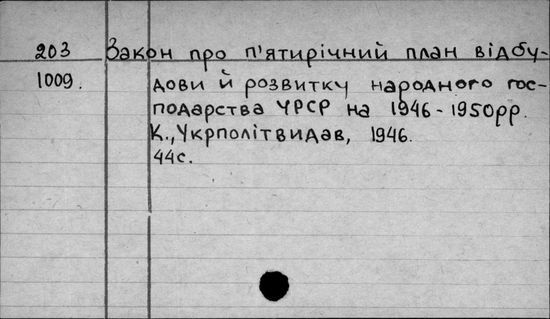 203 Закон про п'ятирічний план відбу-
1009. дови й розвитку народного гос-
подарства УРСР на 1946-1950рр.
К., Укрполітвидав, 1946.
44с.